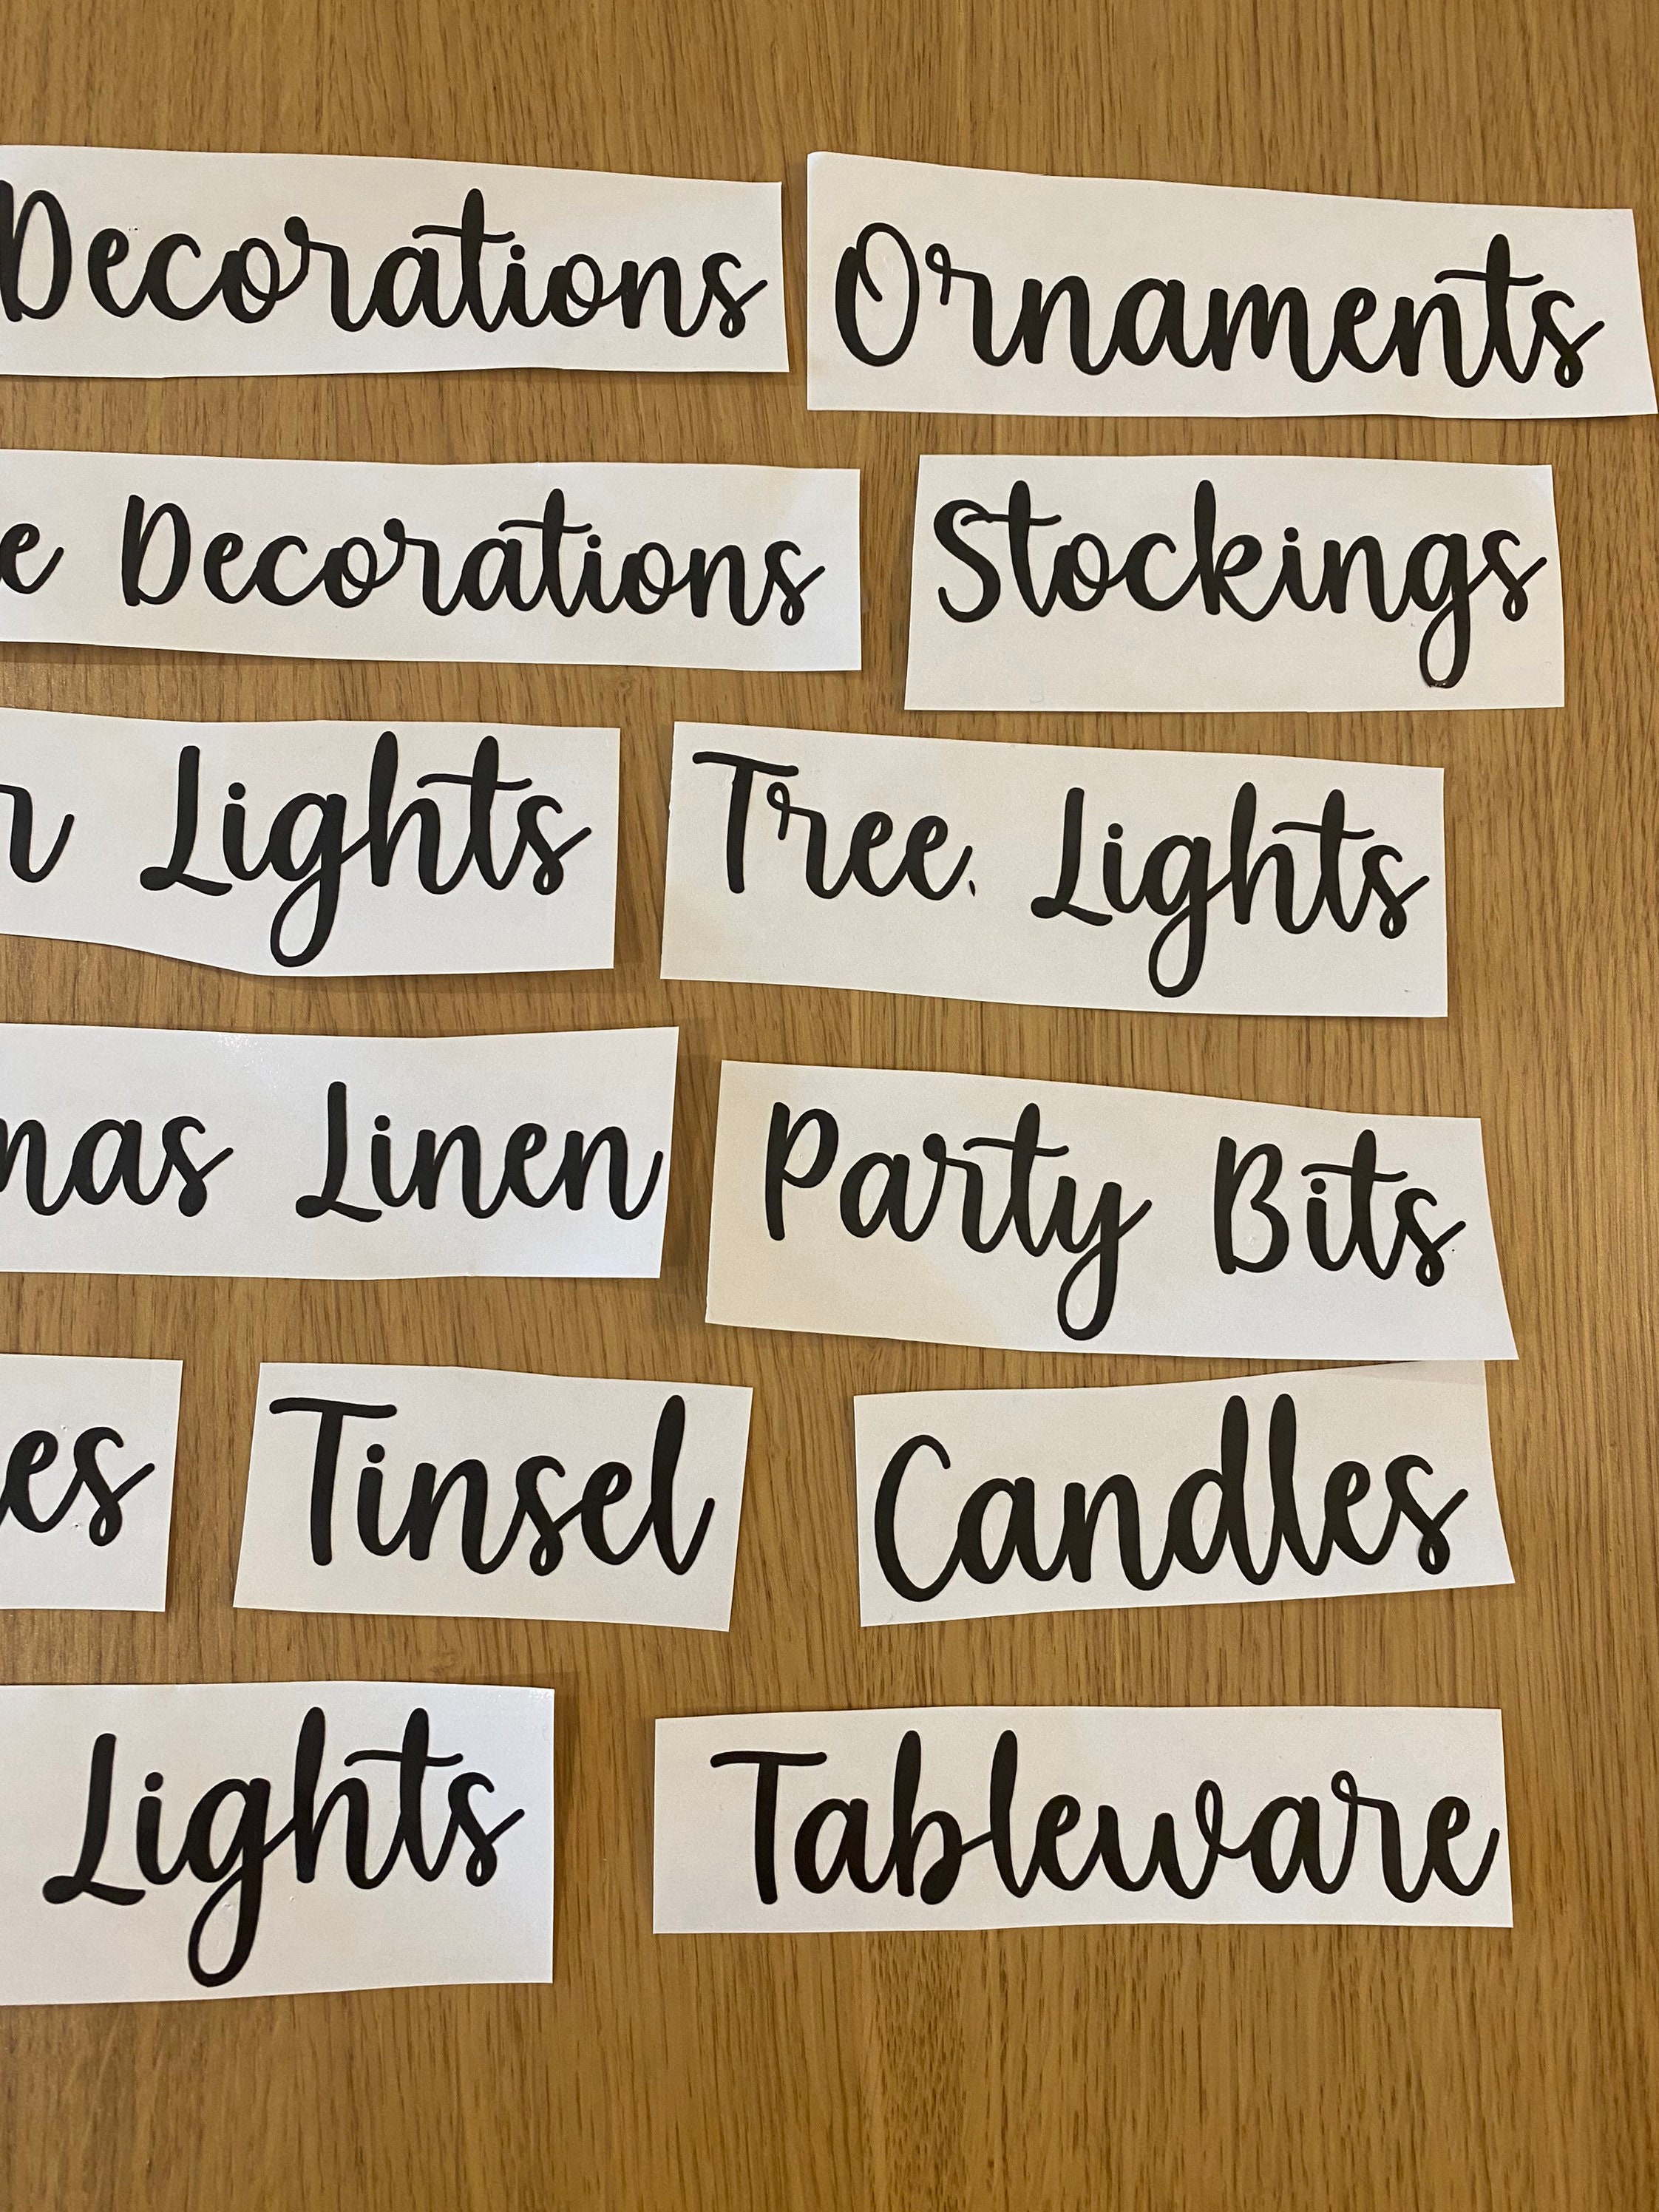 Decorations Ornaments
e Decorations Stockings
r Lights Tree. Lights
mas Linen Party Bits
es Tinsel Candles
Lights Tableware